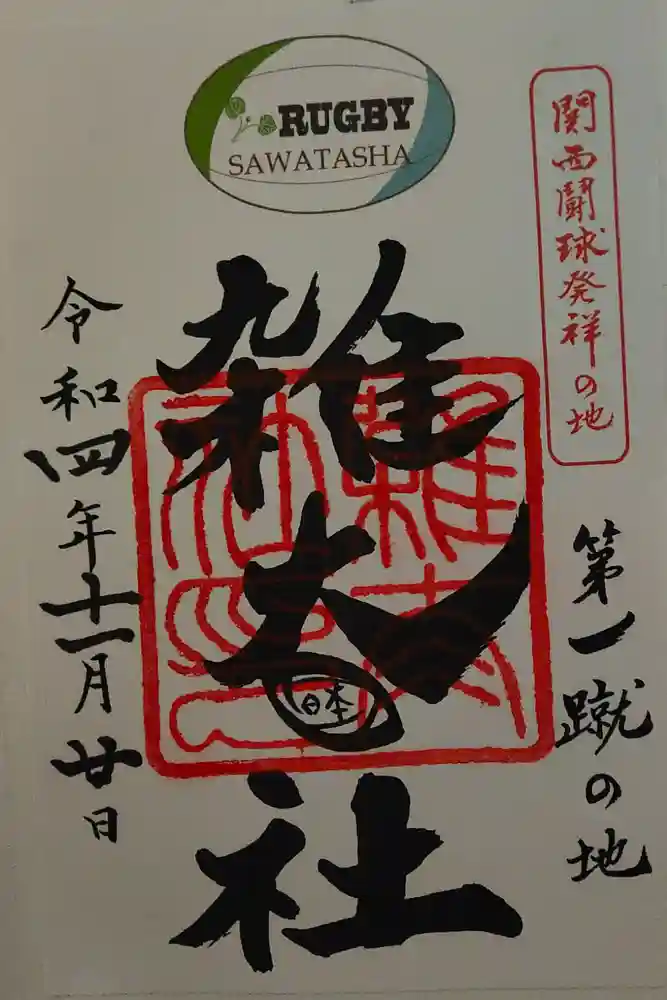 RUGBY
SAWATASHA
関西鬪球発祥の地
第一蹴の地
雑太社
日本
令和四年十一月廿日